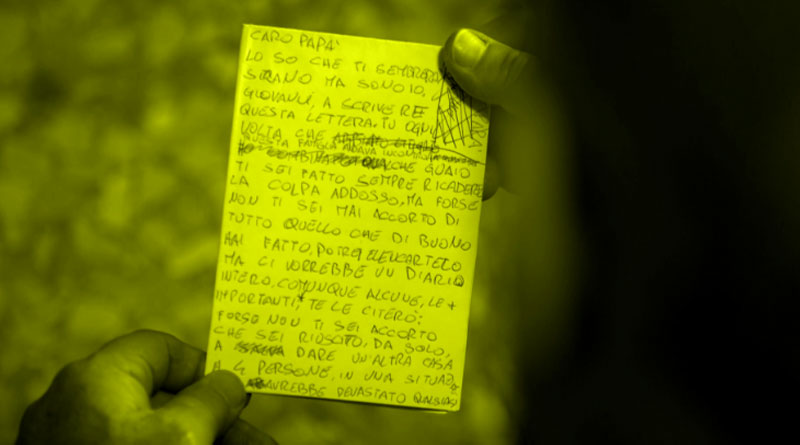 CARO PAPA'
LO SO CHE TI SEMBRERÀ
STRANO MA SONO IO,
GIOVANNI, A SCRIVERE
QUESTA LETTERA. TU OGNI
VOLTA CHE
QUESTA FAMIGLIA
QUALCHE GUAIO
TI SEI FATTO SEMPRE RICADERE
LA COLPA ADDOSSO, MA FORSE
NON TI SEI MAI ACCORTO DI
TUTTO QUELLO CHE DI BUONO
HAI FATTO, POTREI ELENCARTELO
MA CI VORREBBE UN DIARIO
INTERO, COMUNQUE ALCUNE, LE +
IMPORTANTI, TE LE CITERÒ:
FORSE NON TI SEI ACCORTO
CHE SEI RIUSCITO, DA SOLO,
A DARE UN'ALTRA CASA
A 4 PERSONE, IN UNA
AVREBBE DEVASTATO